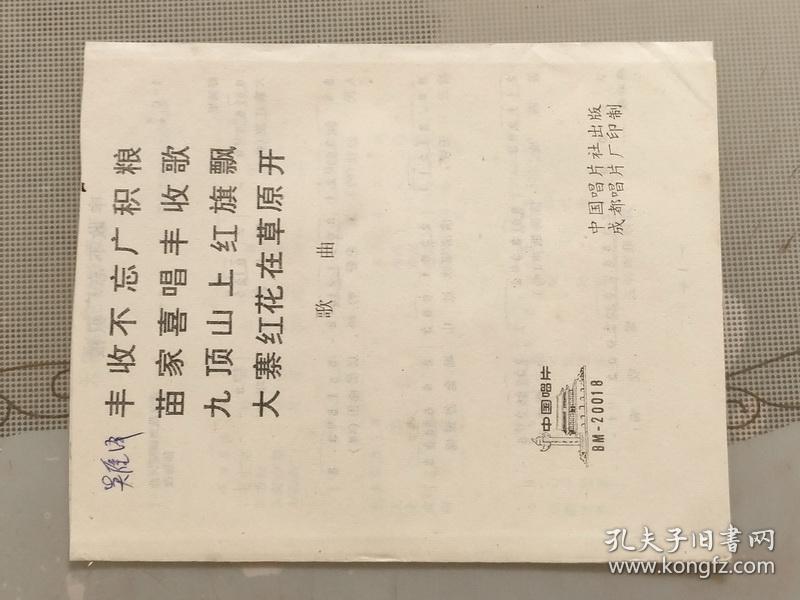 丰收不忘广积粮
苗家喜唱丰收歌
九顶山上红旗飘
大寨红花在草原开
歌曲
中国唱片
BM-20018
中国唱片社出版
成都唱片厂印制
孔夫子旧书网
www.kongfz.com